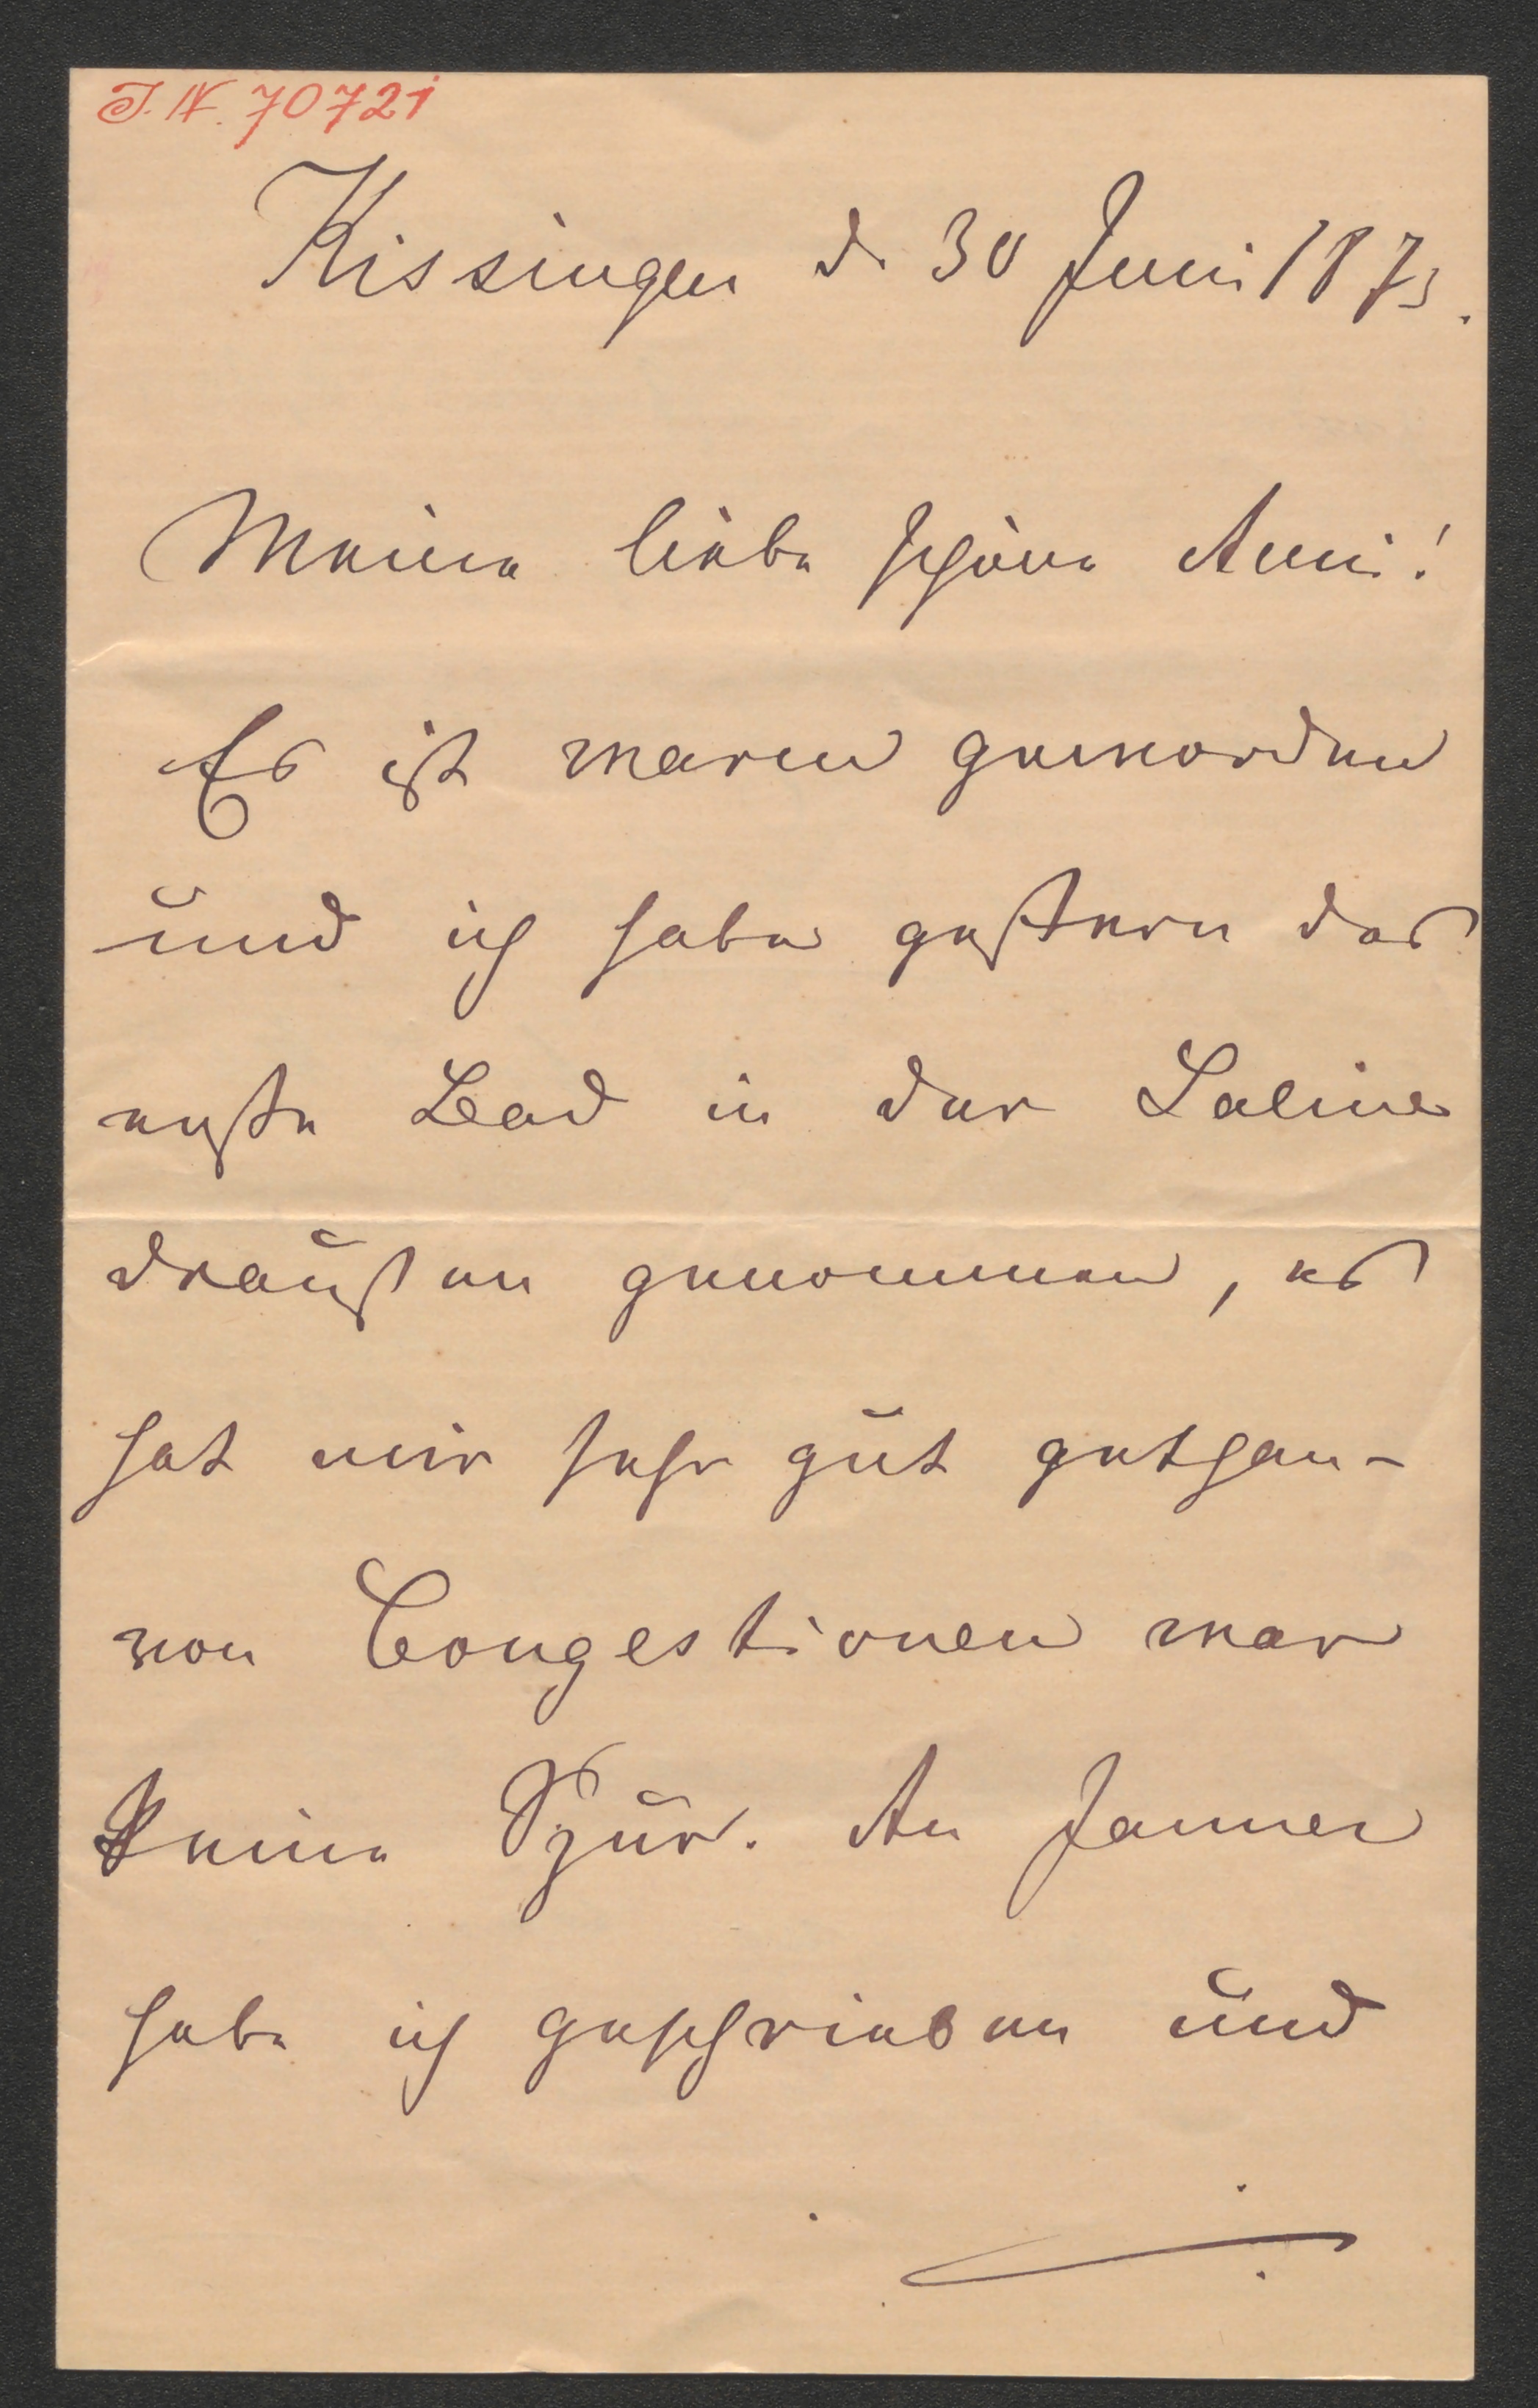 I. N. 70721
Kissingen d. 30 Juni 1873.
Meine liebe schöne Anni!
Es ist warm geworden
und ich habe gestern das
erste Bad in der Saline
draußen genommen, es
hat mir sehr gut gethan –
von Congestionen war
keine Spur. An Janner
habe ich geschrieben und